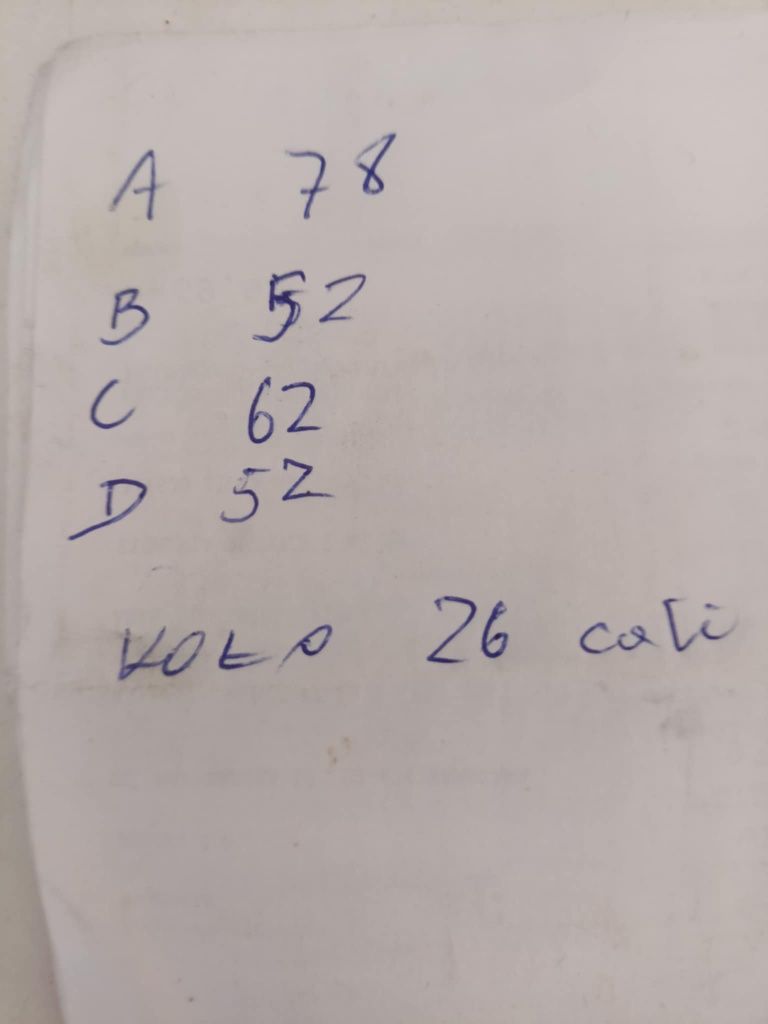 A 78
B 52
C 62
D 52
KOŁO 26 cali